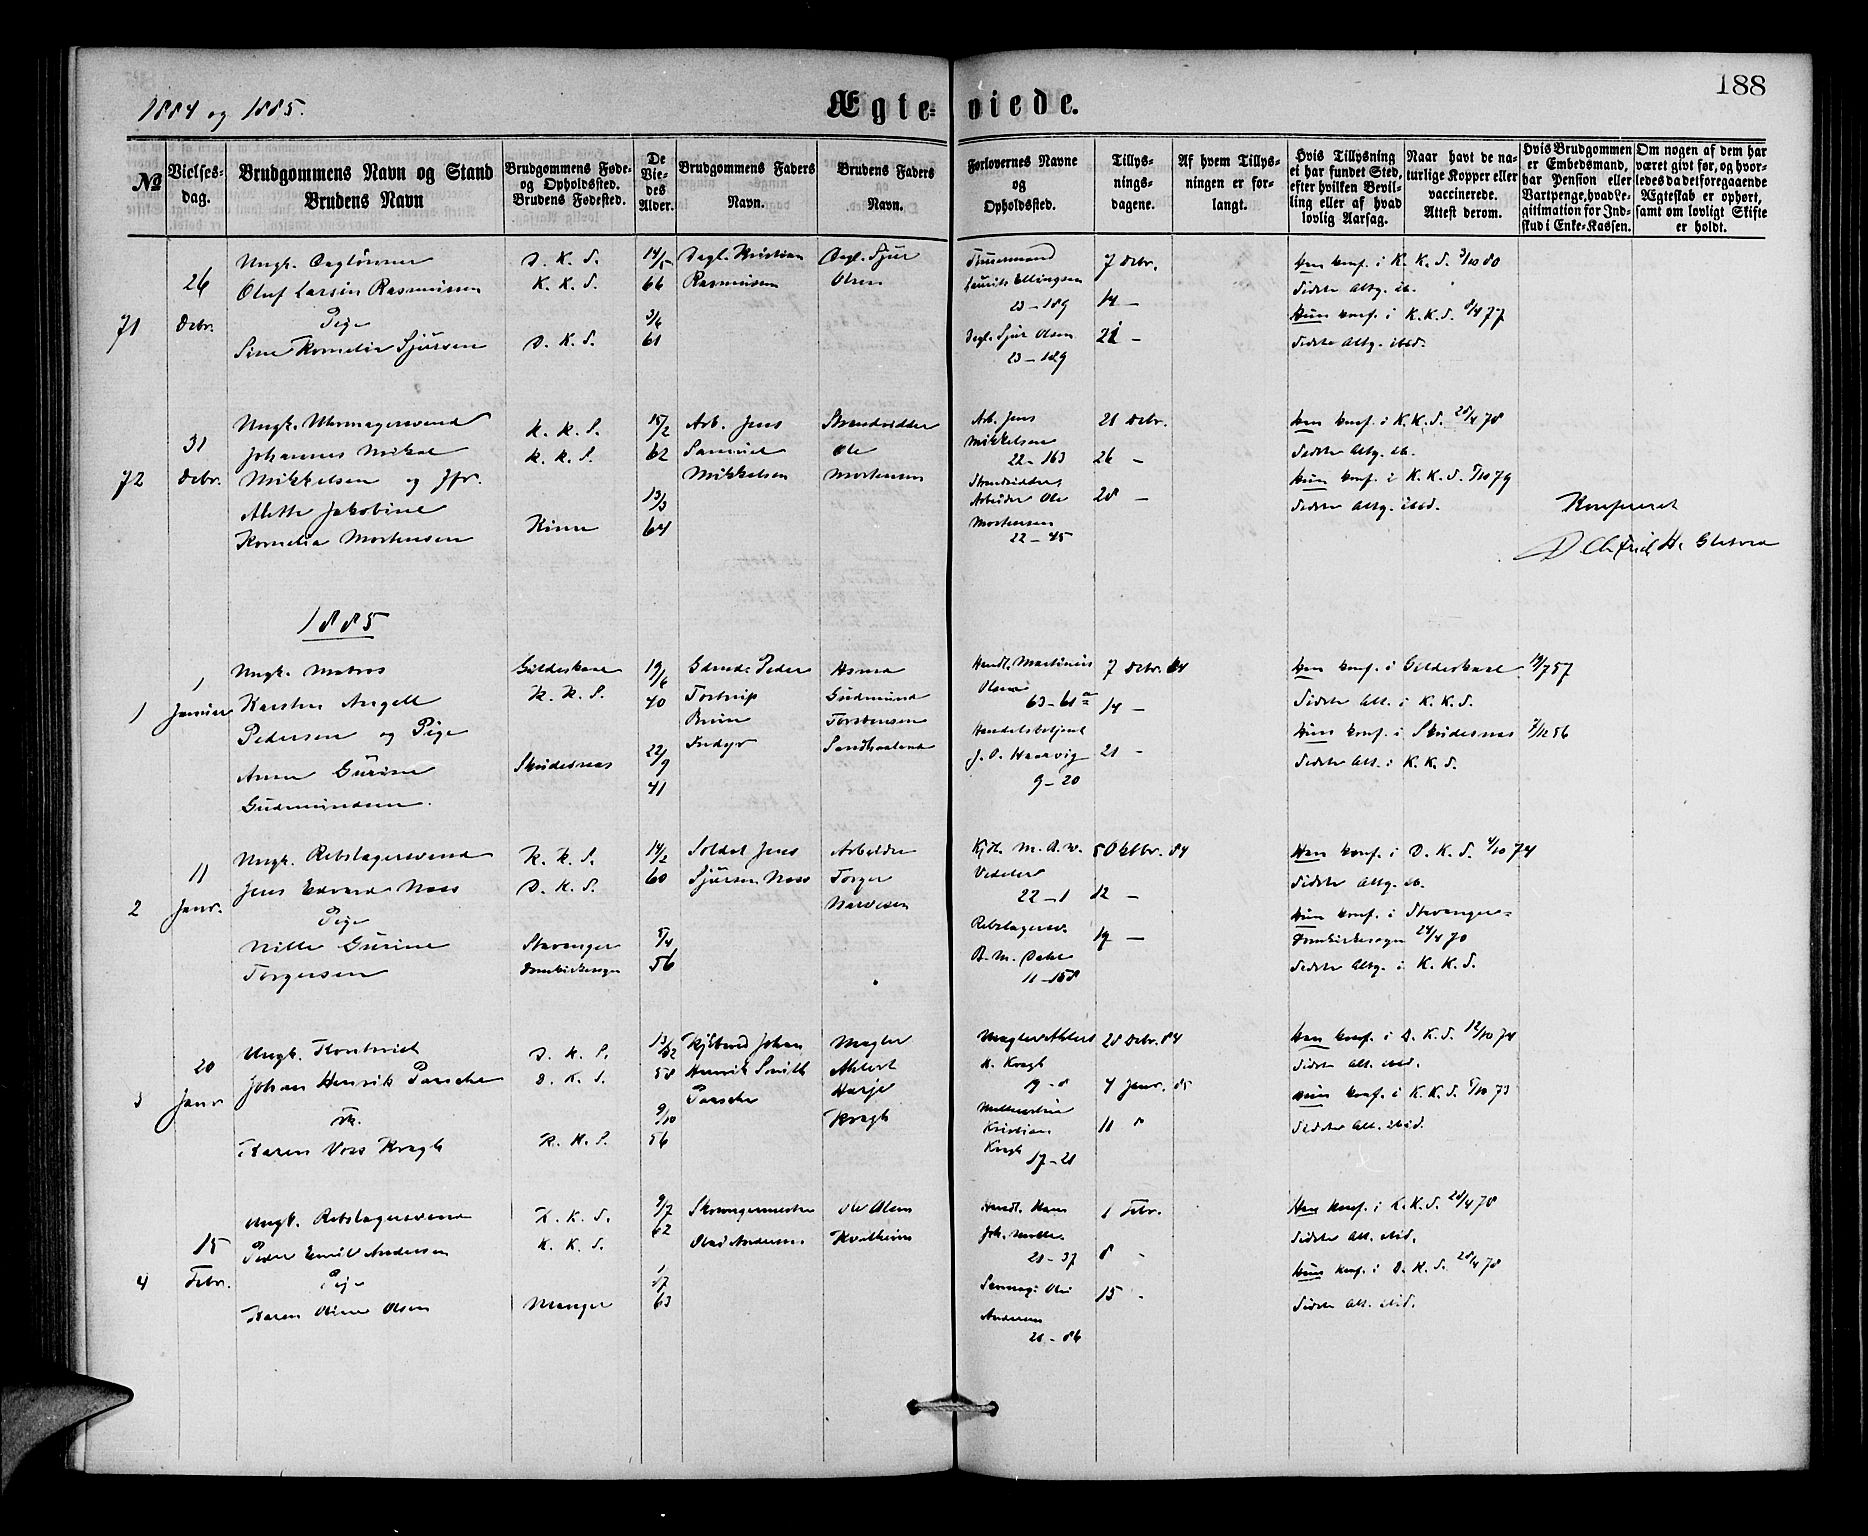 188
1884 og 1885.
Ægte- viede.
№
Vielses-
dag.
Brudgommens Navn og Stand
Brudens Navn
Brudgommens Føde-
og Opholdssted.
Brudens Fødested.
De
Vie-
des
Alder.
Brudgommens Faders
Navn.
Brudens Faders
og
Navn.
Forlovernes Navne
og
Opholdssted.
Tillys-
nings-
dagene.
Af hvem Tillys-
ningen er for-
langt.
Hvis Tillysning
ei har fundet Sted,
efter hvilken Bevil-
ling eller af hvad
lovlig Aarsag.
Naar havt de na-
turlige Kopper eller
vaccinerede.
Attest derom.
Hvis Brudgommen
er Embedsmand,
har Pension eller
Vartpenge, hvad Le-
gitimation for Ind-
skud i Enke-Kassen.
Om nogen af dem har
været givt før, og hvor-
ledes da det foregaaende
Ægteskab er ophørt,
samt om lovligt Skifte
er holdt.
71
26
Debr.
Ungk. Daglønner
Oluf Larsen Rasmussen
Pige
Sine Kornelia Sjursen
D. K. S.
K. K. S.
D. K. S.
14/5
66
3/6
61
Dagl. Kristian
Rasmussen
Dagl. Sjur
Olsen
Tømmermand
Laurits Ellingsen
23 - 189
Dagl. Sjur Olsen
23 - 129
7 Debr.
14 -
21 -
Han konf. i K. K. S. 3/10 80
Sidste Altg. ib.
Hun konf. i K. K. S. 8/4 77
Sidste Altg. ibid.
72
31
Debr.
Ungk. Uhrmagersvend
Johannes Mikal
Mikkelsen og Jfr.
Alette Jakobine
Kornelia Mortensen
K. K. S.
K. K. S.
Kinn
15/2
62
13/3
64
Arb. Jens
Samuel
Mikkelsen
Strandsidder
Ole
Mortensen
Arb. Jens
Mikkelsen
22 - 163
Strandsidder
Arbeider Ole
Mortensen
22 - 45
21 Debr.
26 -
28 -
Han konf. i K. K. S. 28/4 78
Sidste Altg. ib.
Hun konf. i K. K. S. 5/10 79
Sidste Altg. ibid.
Konfereret
1885
1
1
Januar
Ungk. Matros
Karsten Angell
Pedersen og Pige
Anne Gurine
Gudmundsen.
Gildeskaal
K. K. S.
Skudesnæs
19/6
40
22/9
41
Gdmd. Peder
Tostrup
Brun
Indyr
Husmd
Gudmund
Torstensen
Sandhaaland
Handl. Martinius
Olsen
63 - 61a
Handelsbetjent
J. O. Haarvig
9 - 20
7 Debr. 84
14 -
21 -
Han konf. i Gildeskaal 19/7 57
Sidste Alt. i K. K. S.
Hun konf. i Skudesnæs 7/12 56
Sidste Alt. i K. K. S.
2
11
Janr.
Ungk. Rebslagersvend
Jens Edvard Næss
Pige
Nille Gurine
Torgersen
K. K. S.
D. K. S.
Stavanger
Domkirkesogn
14/2
60
5/4
56
Soldat Jens
Sjursen Næss
Arbeider
Torger
Narvesen
Kjøbm. M. A. W.
Vedeler
22 - 1
Rebslagersv.
B. M. Dahl
11 - 158
5 Oktbr. 84
12 -
19 -
Han konf. i D. K. S. 4/10 74
Sidste Altg. ib.
Hun konf. i Stavanger-
Domkirkesogn 24/4 70
Sidste Altg. i K. K. S.
3
20
Janr
Ungk. Kontorist
Johan Henrik Paasche
Fk.
Karen Voss Kragh
D. K. S.
D. K. S.
K. K. S.
13/12
58
9/10
56
Kjøbmd Johan
Henrik Smith
Paasche
Mægler
Ahlert
Hysing
Kragh
Mægler Ahlert
H. Kragh
19 - 8
Kristian
Kragh
17 - 21
28 Debr. 84
4 Janr. 85
11 "
Han konf. i D. K. S. 12/10 74
Sidste Alt. ibid.
Hun konf. i K. K. S. 5/10 73
Sidste Alt. ibid.
4
15
Febr.
Ungk. Rebslagersvend
Peder Emil Andersen
Pige
Karen Oline Olsen
K. K. S.
K. K. S.
Manger
9/7
62
1/7
63
Skomagermester
Olai Andersen
Ole Olsen
Kvilheim
Handl. Hans
Joh. Molle
21 - 37
Skomag. Olai
Andersen
21 - 86
1 Febr.
8 -
15 -
Han konf. i K. K. S. 28/4 78
Sidste Alt. ibid.
Hun konf. i D. K. S. 28/4 78
Sidste Alt. ibid.